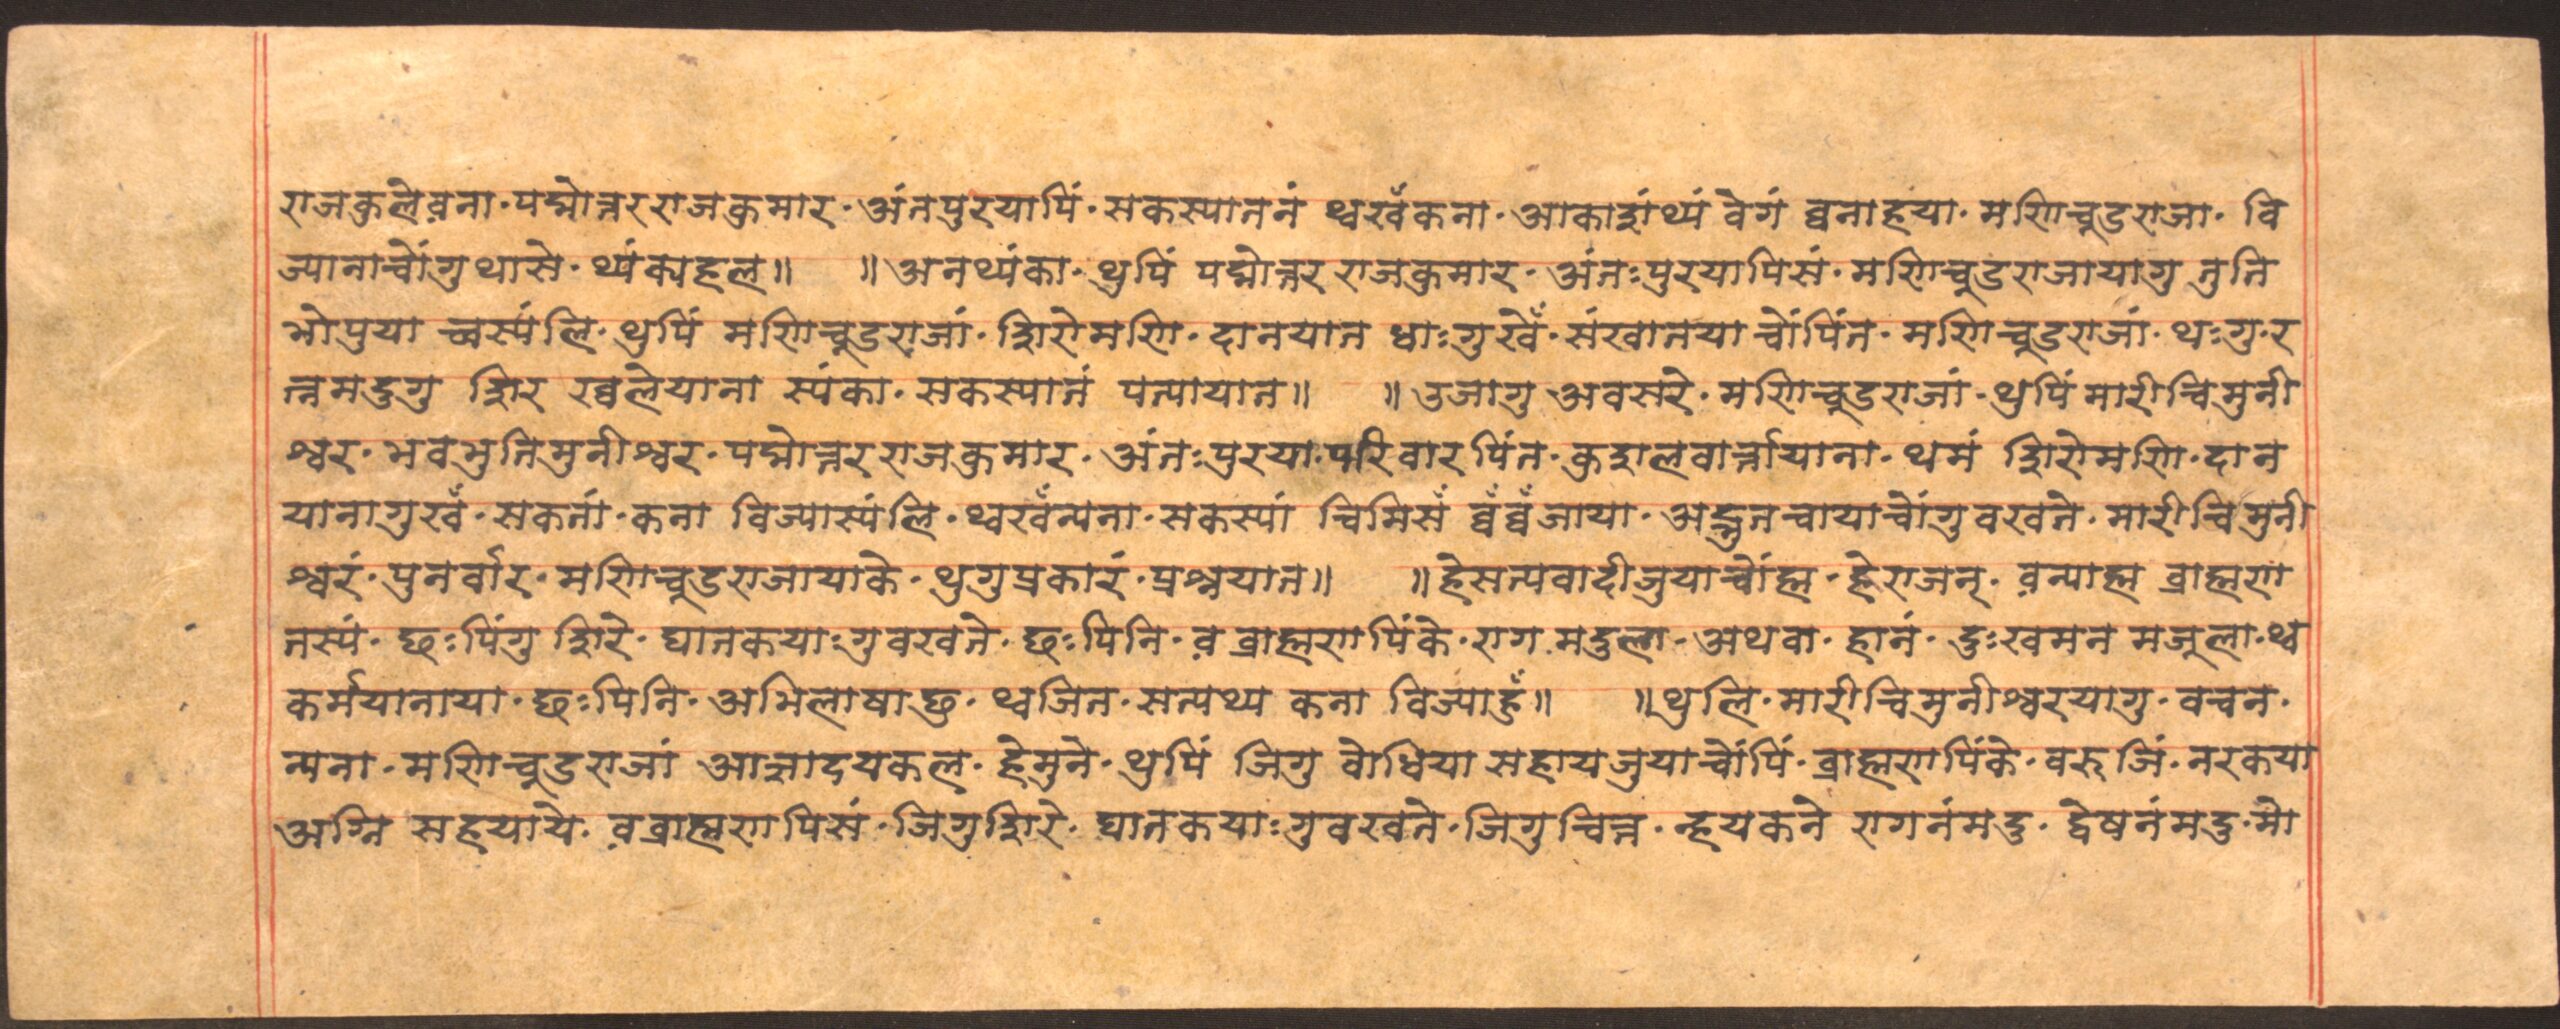 राजकुलेव़ना·पद्मोत्तरराजकुमार·अंतपुरयापिं·सकस्यातनं थ्वखँकना·आकाशंथ्यं वेगं ब्वनाहया·मणिचूडराजा· वि
ज्यानाच्वोंगु थासे·थ्यंक्यहल॥ ॥अनथ्यंका·थुपिं पद्मोत्तर राजकुमार·अंतःपुरयापिसं·मणिचूडराजायागु तुति
भोपुया च्वस्यंलि·थुपिं मणिचूडराजां·शिरोमणि·दानयात धाःगुखँ·संखातया च्वोंपिंत·मणिचूडराजां·थःगु·र
त्नमदुगु शिर ख्वलेयाना स्यंका·सकस्यातं पत्यायात॥ ॥उजागु अवसरे·मणिचूडराजां·थुपिं मारीचिमुनी
श्वर·भवभुतिमुनीश्वर·पद्मोत्तरराजकुमार·अंतःपुरया·परिवारपिंत·कुशलवार्त्तायाना·थमं शिरोमणि·दान
यानागुखँ·सकतां·कना विज्यास्यंलि·थ्वखँन्यना·सकस्यां चिमिसँ ब्वँब्वँजाया·अद्भुतचायाच्वोंगुवखते·मारीचिमुनी
श्वरं·पुनर्वार·मणिचूडराजायाके·थुगुप्रकारं·प्रश्नयात॥ ॥हेसत्यवादीजुयाच्वोंह्म·हेराजन्·व़न्याह्म ब्राह्मण
तस्यं·छःपिंगु शिरे·घातकयाःगुवखते·छःपिनि·व़ ब्राह्मणपिंके·राग मदुला·अथवा·हानं·दुःखमन मजूला·थ्व
कर्मयानाया·छःपिनि·अभिलाषा छु·थ्वजित·सत्यथ्य कना विज्याहुँ॥ ॥थुलि·मारीचिमुनीश्वरयागु·वचन·
न्यना·मणिचूडराजां आज्ञादयकल·हेमुने·थुपिं जिगु वोधिया सहायजुयाच्वोंपिं·ब्राह्मणपिंके·वरु जिं·नरकया
अग्नि सहयाये·व़ब्राह्मणपिसं·जिगुशिरे·घातकयाःगुवखते·जिगुचित्त·न्हयकने रागनंमदु·द्वेषनंमदु·मो